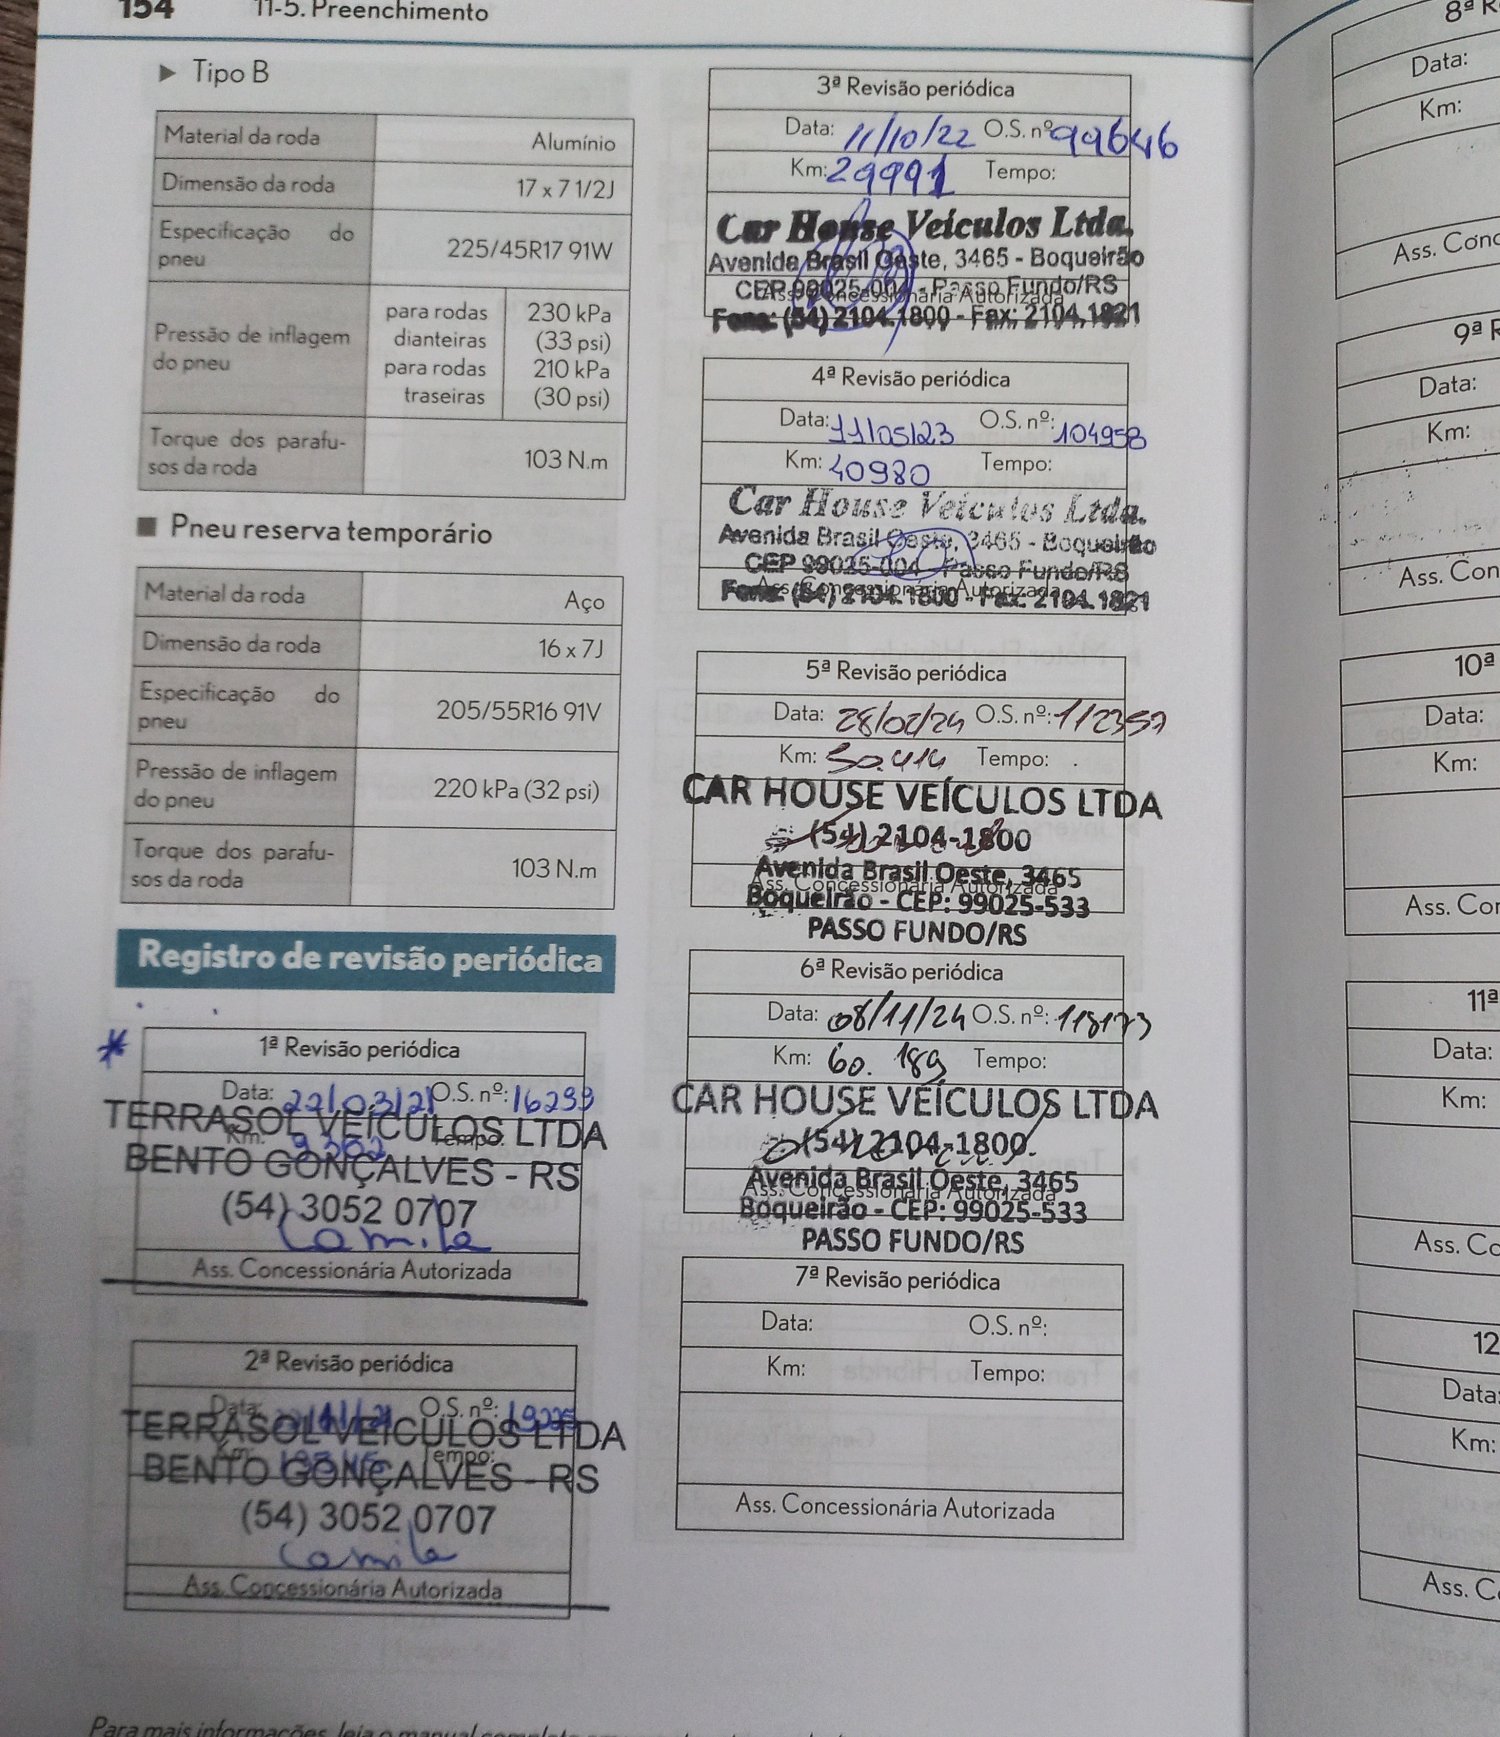 154 11-5. Preenchimento
▶ Tipo B
Material da roda Alumínio
Dimensão da roda 17 x 7 1/2J
Especificação do
pneu 225/45R17 91W
Pressão de inflagem
do pneu
para rodas
dianteiras
230 kPa
(33 psi)
para rodas
traseiras
210 kPa
(30 psi)
Torque dos parafu-
sos da roda 103 N.m
■ Pneu reserva temporário
Material da roda Aço
Dimensão da roda 16 x 7J
Especificação do
pneu 205/55R16 91V
Pressão de inflagem
do pneu 220 kPa (32 psi)
Torque dos parafu-
sos da roda 103 N.m
Registro de revisão periódica
*
1ª Revisão periódica
Data: 22/03/21 O.S. nº: 16299
TERRASOL VEÍCULOS LTDA
Km: Tempo:
BENTO GONÇALVES - RS
(54) 3052 0707
Camila
Ass. Concessionária Autorizada
2ª Revisão periódica
Data: O.S. nº:
TERRASOL VEÍCULOS LTDA
Km: Tempo:
BENTO GONÇALVES - RS
(54) 3052 0707
Camila
Ass. Concessionária Autorizada
3ª Revisão periódica
Data: 11/10/22 O.S. nº 99646
Km: 29991 Tempo:
Car House Veículos Ltda.
Avenida Brasil Oeste, 3465 - Boqueirão
CEP 99025-004 - Passo Fundo/RS
Ass. Concessionária Autorizada
Fone: (54) 2104.1800 - Fax: 2104.1821
4ª Revisão periódica
Data: 11/05/23 O.S. nº: 104958
Km: 40980 Tempo:
Car House Veículos Ltda.
Avenida Brasil Oeste, 3465 - Boqueirão
CEP 99025-004 - Passo Fundo/RS
Ass. Concessionária Autorizada
Fone: (54) 2104.1800 - Fax: 2104.1821
5ª Revisão periódica
Data: 28/02/24 O.S. nº: 112357
Km: 50.414 Tempo:
CAR HOUSE VEÍCULOS LTDA
(54) 2104-1800
Avenida Brasil Oeste, 3465
Ass. Concessionária Autorizada
Boqueirão - CEP: 99025-533
PASSO FUNDO/RS
6ª Revisão periódica
Data: 08/11/24 O.S. nº: 118173
Km: 60.189 Tempo:
CAR HOUSE VEÍCULOS LTDA
(54) 2104-1800
Avenida Brasil Oeste, 3465
Ass. Concessionária Autorizada
Boqueirão - CEP: 99025-533
PASSO FUNDO/RS
7ª Revisão periódica
Data: O.S. nº:
Km: Tempo:
Ass. Concessionária Autorizada
8ª
Data:
Km:
Ass.
9ª
Data:
Km:
Ass.
10ª
Data:
Km:
Ass.
11ª
Data:
Km:
Ass.
12
Data:
Km:
Ass.
Para mais informações, leia o manual completo